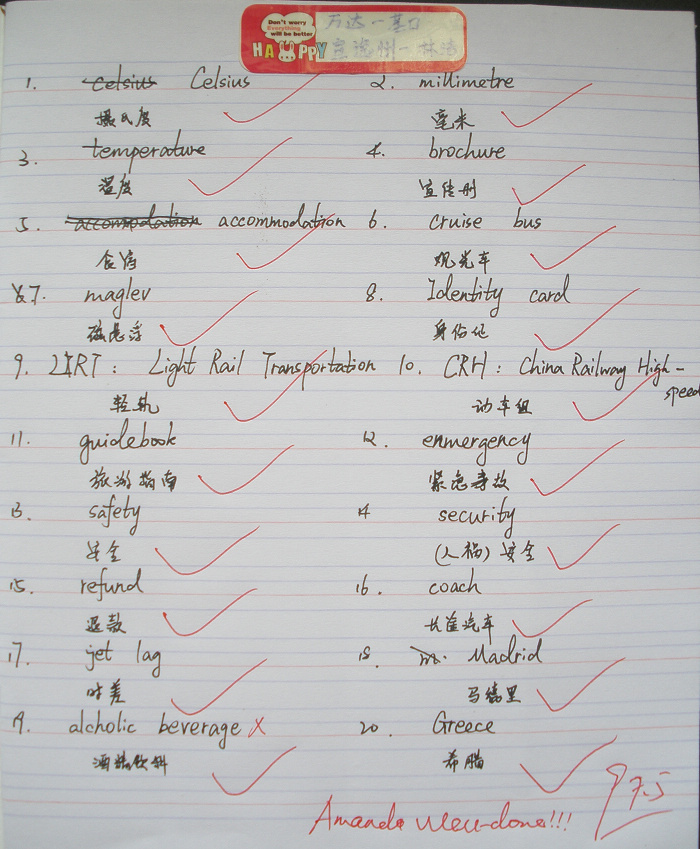 Don't worry
Everything
will be better
HAPPY
万达一基口
宣逸州一林浩
1. Celsius Celsius 2. millimetre
摄氏度 毫米
3. temperature 4. brochure
温度 宣传册
5. accommodation accommodation 6. cruise bus
食宿 观光车
7. maglev 8. Identity card
磁悬浮 身份证
9. LRT: Light Rail Transportation 10. CRH: China Railway High-
speed
轻轨 动车组
11. guidebook 12. enmergency
旅游指南 紧急事故
13. safety 14 security
安全 (人祸) 安全
15. refund 16. coach
退款 长途汽车
17. jet lag 18. Madrid
时差 马德里
19. alcholic beverage x 20. Greece
酒精饮料 希腊
97.5
Amanda Well-done!!!